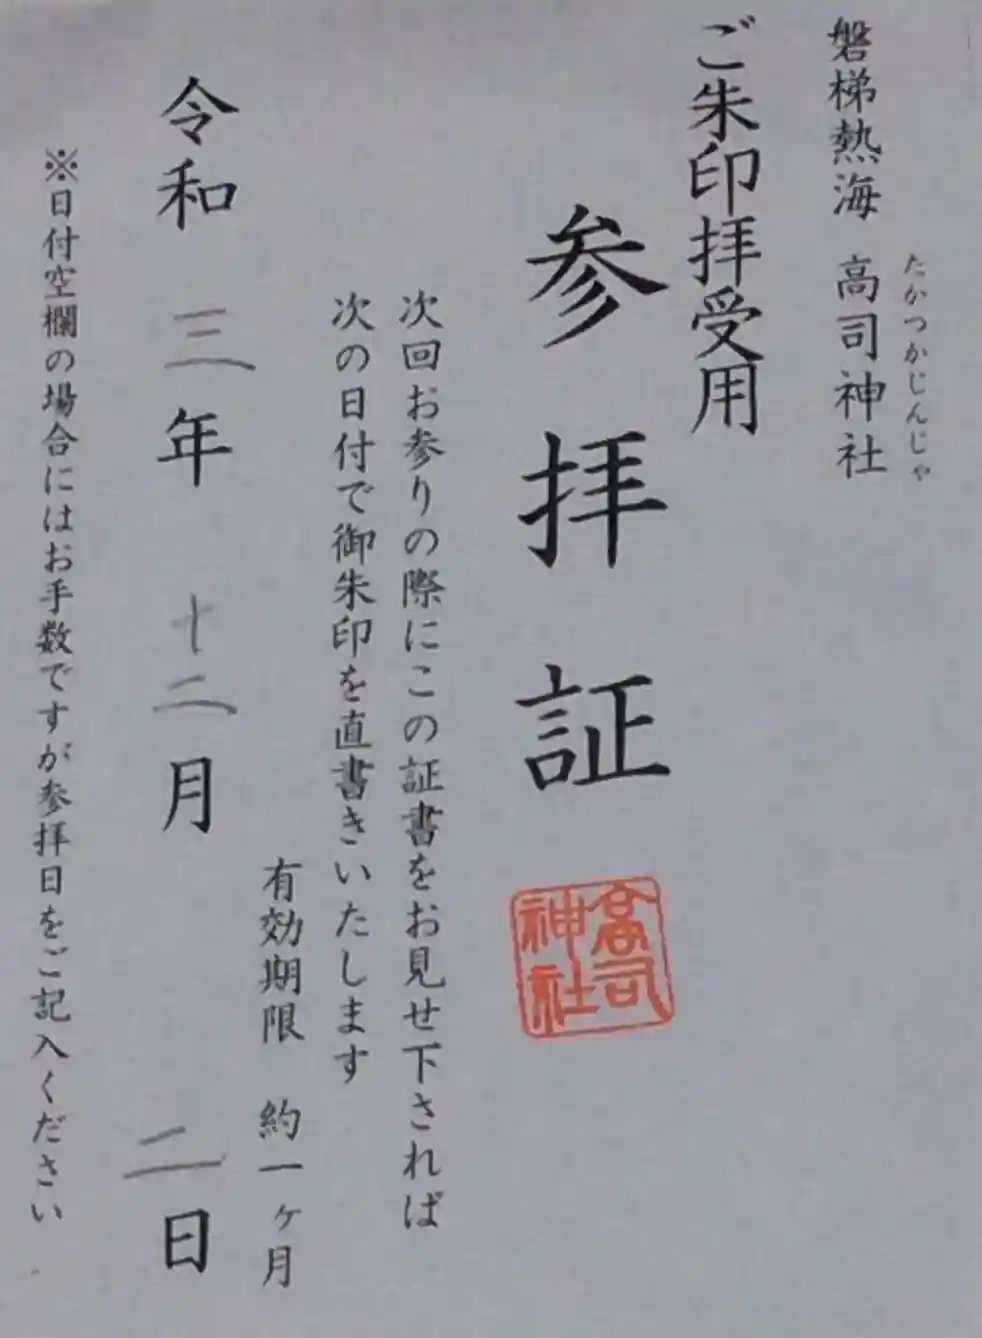 たかつかじんじゃ
磐梯熱海 高司神社
ご朱印拝受用
参拝証
高司
神社
次回お参りの際にこの証書をお見せ下されば
次の日付で御朱印を直書きいたします
有効期限 約一ヶ月
令和 三年 十二月 二日
※日付空欄の場合にはお手数ですが参拝日をご記入ください